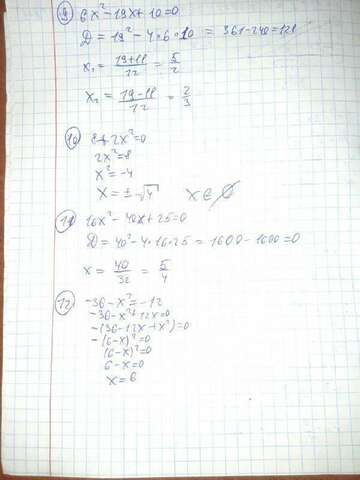 9) 6x² - 19x + 10 = 0
D = 19² - 4·6·10 = 361 - 240 = 121
x₁ = (19+11)/12 = 5/2
x₂ = (19-11)/12 = 2/3
10) 8+2x²=0
2x²=8
x²=-4
x=±√4 x∈∅
11) 16x² - 40x + 25 = 0
D = 40² - 4·16·25 = 1600 - 1600 = 0
x = 40/32 = 5/4
12) -36 - x² = -12
-36 - x² + 12x = 0
-(36 - 12x + x²) = 0
-(6-x)² = 0
(6-x)² = 0
6 - x = 0
x = 6